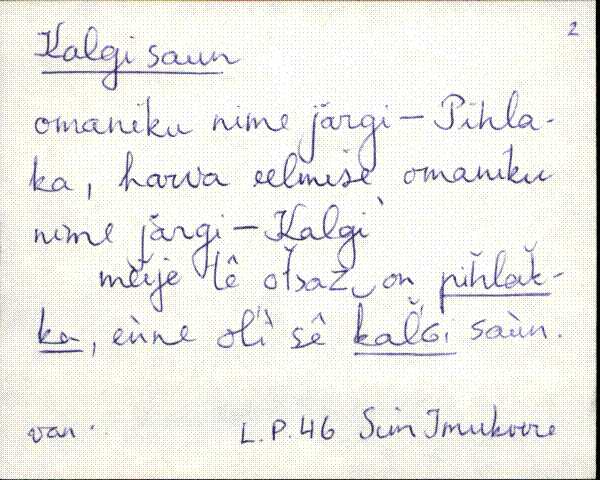 2
Kalgi saun
omaniku nime järgi – Pihla-
ka, harva eelmise omaniku
nime järgi – Kalgi
meije tê otsaz on pĭhlăk-
ka, eǹne oli sê kalGi saùn.
van. L.P.46 Siim Imukvere